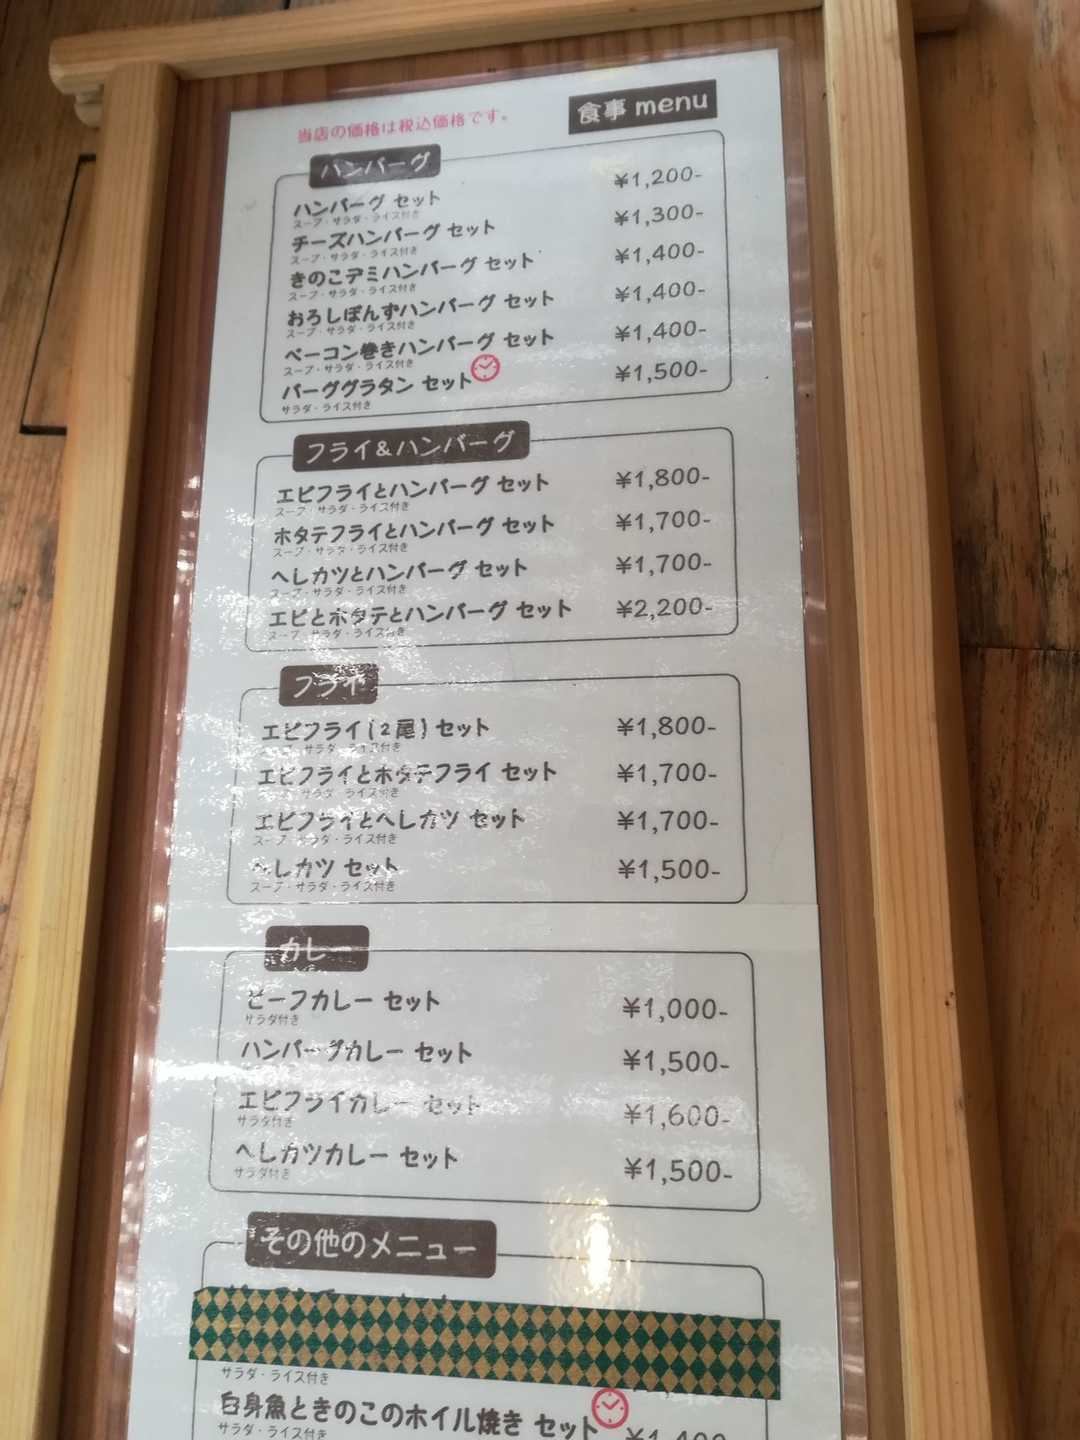 食事 menu
当店の価格は税込価格です。
ハンバーグ
ハンバーグ セット ¥1,200-
スープ・サラダ・ライス付き
チーズハンバーグ セット ¥1,300-
スープ・サラダ・ライス付き
きのこデミハンバーグ セット ¥1,400-
スープ・サラダ・ライス付き
おろしぽんずハンバーグ セット ¥1,400-
スープ・サラダ・ライス付き
ベーコン巻きハンバーグ セット ¥1,400-
スープ・サラダ・ライス付き
バーググラタン セット ¥1,500-
サラダ・ライス付き
フライ&ハンバーグ
エビフライとハンバーグ セット ¥1,800-
スープ・サラダ・ライス付き
ホタテフライとハンバーグ セット ¥1,700-
スープ・サラダ・ライス付き
へしカツとハンバーグ セット ¥1,700-
スープ・サラダ・ライス付き
エビとホタテとハンバーグ セット ¥2,200-
スープ・サラダ・ライス付き
フライ
エビフライ(2尾) セット ¥1,800-
スープ・サラダ・ライス付き
エビフライとホタテフライ セット ¥1,700-
スープ・サラダ・ライス付き
エビフライとへしカツ セット ¥1,700-
スープ・サラダ・ライス付き
へしカツ セット ¥1,500-
スープ・サラダ・ライス付き
カレー
ビーフカレー セット ¥1,000-
サラダ付き
ハンバーグカレー セット ¥1,500-
エビフライカレー セット ¥1,600-
サラダ付き
へしカツカレー セット ¥1,500-
サラダ付き
その他のメニュー
サラダ・ライス付き
白身魚ときのこのホイル焼き セット
サラダ・ライス付き